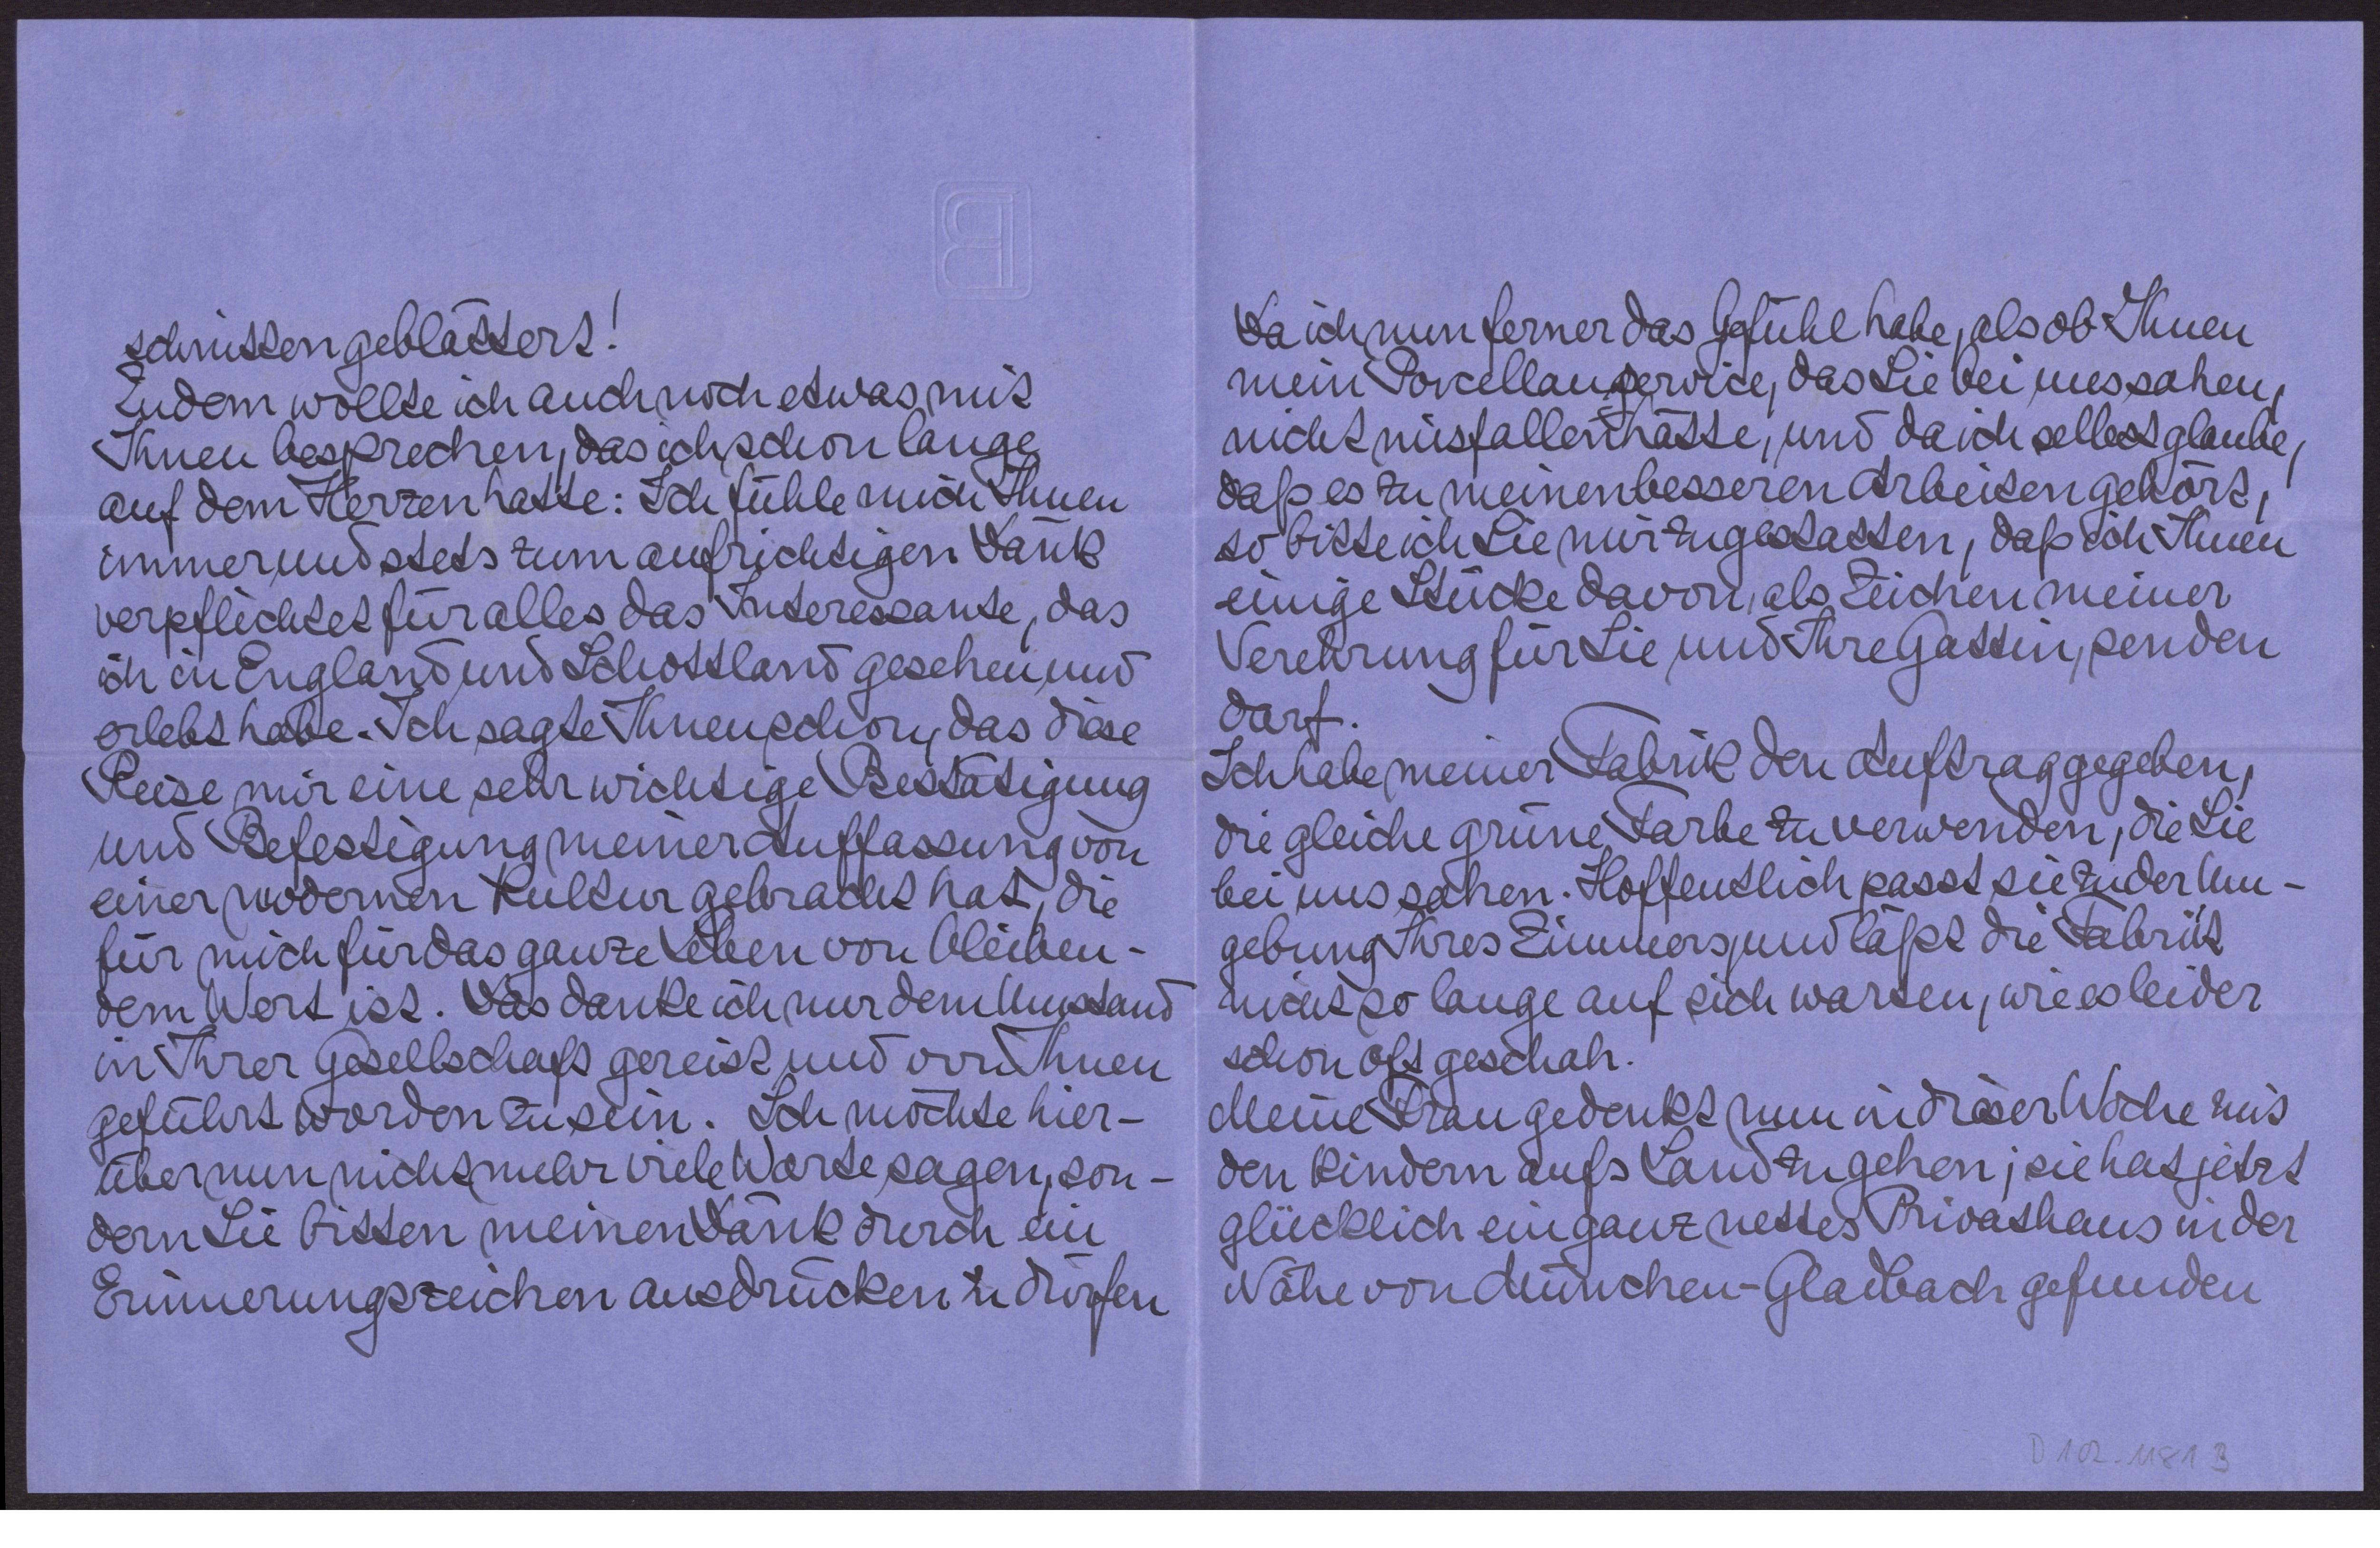 schnitten geblättert!
Zudem wollte ich auch noch etwas mit
Ihnen besprechen, das ich schon lange
auf dem Herzen hatte: Ich fühle mich Ihnen
immer und stets zum aufrichtigen Dank
verpflichtet für alles das Interessante, das
ich in England und Schottland gesehen und
erlebt habe. Ich sagte Ihnen schon, das diese
Reise mir eine sehr wichtige Bestätigung
und Befestigung meiner Auffassung von
einer modernen Kultur gebracht hat, die
für mich für das ganze Leben von bleiben-
dem Wert ist. Das danke ich nur dem Umstand
in Ihrer Gesellschaft gereist und von Ihnen
geführt worden zu sein. Ich möchte hier-
über nun nicht mehr viele Worte sagen, son-
dern Sie bitten meinen Dank durch ein
Erinnerungszeichen ausdrücken zu dürfen
Da ich nun ferner das Gefühl habe, als ob Ihnen
mein Porcellanservice, das Sie bei uns sahen,
nicht misfallen hätte, und da ich selbst glaube,
daß es zu meinen besseren Arbeiten gehört,
so bitte ich Sie mir zu gestatten, daß ich Ihnen
einige Stücke davon, als Zeichen meiner
Verehrung für Sie und Ihre Gattin, senden
darf.
Ich habe meiner Fabrik den Auftrag gegeben,
die gleiche grüne Farbe zu verwenden, die Sie
bei uns sahen. Hoffentlich passt sie zu der Um-
gebung Ihres Zimmers, und läßt die Fabrik
nicht so lange auf sich warten, wie es leider
schon oft geschah.
Meine Frau gedenkt nun in dieser Woche mit
den Kindern aufs Land zu gehen; sie hat jetzt
glücklich ein ganz nettes Privathaus in der
Nähe von München-Gladbach gefunden
D 102-1181 B